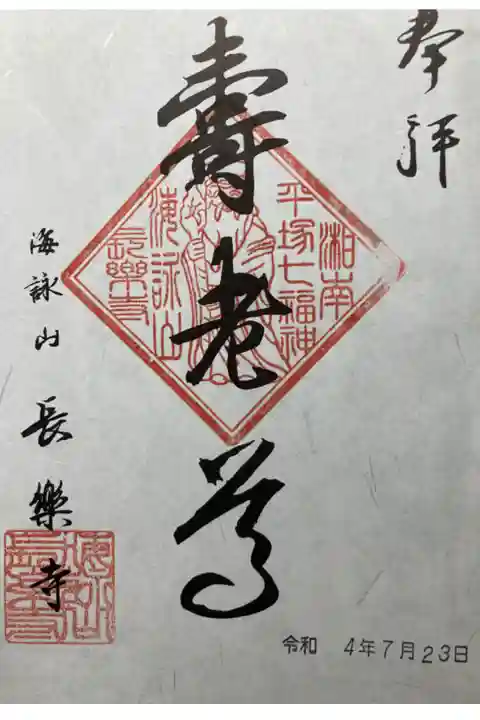 奉拝
壽老尊
湘南
平塚七福神
海詠山
長樂寺
海詠山 長樂寺
令和 4年7月23日